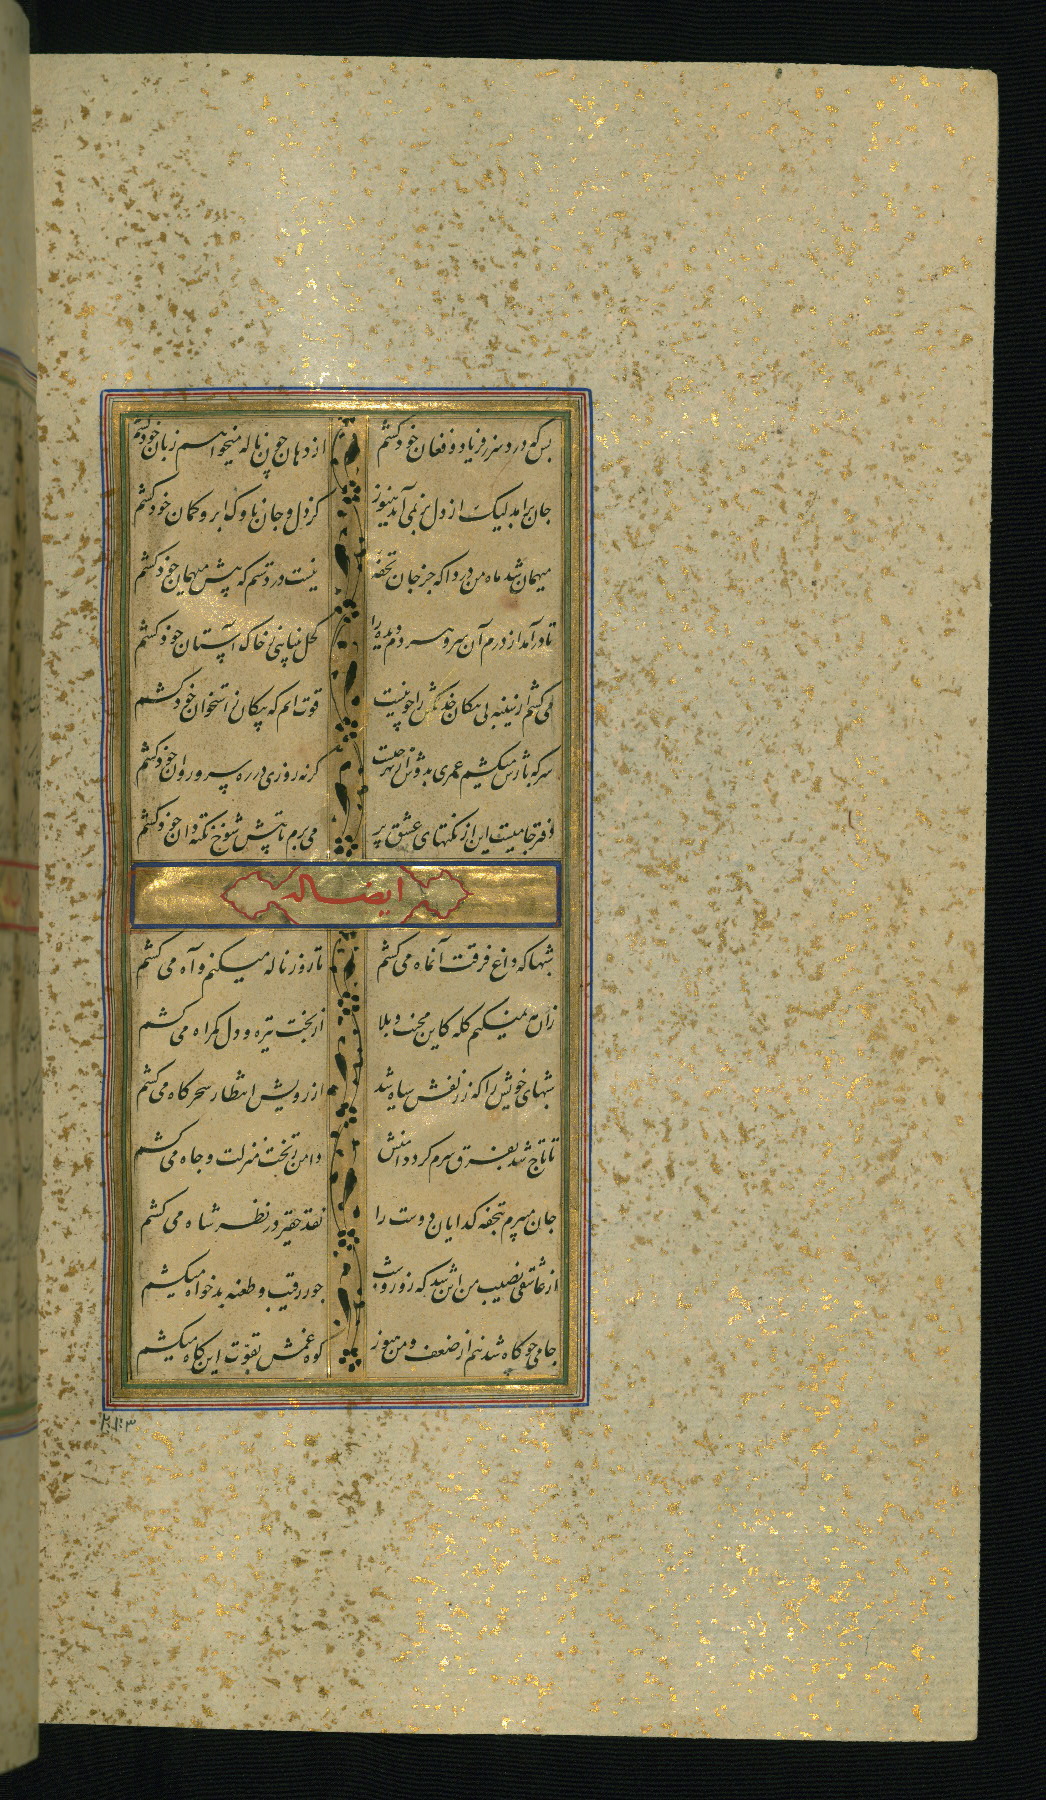 بس که درد سر ز فریاد و فغان خود کشم از دهان چون ناله میخواهم زبان خود کشم
جان برآمد لیک از دل بر نمی آید هنوز کز دل و جان ناوک ابرو کمان خود کشم
میهمان شد ماه من دردا که جز جان تحفه نیست در دستم که پیش میهمان خود کشم
تا درآمد از درم آن سرو هر دم دیده را کحل بینایی ز خاک آستان خود کشم
می کشم از سینه پیکان خدنگش را چو نیست قوت آنم که پیکان ز استخوان خود کشم
سر که بارش میکشم عمری بدوش از بهر چیست گر نه روزی در ره سرو روان خود کشم
دفتر جامیست این از نکتهای عشق پر می برم تا پیش شوخ نکته دان خود کشم
ایضا له
شبها که داغ فرقت آنماه می کشم تا روز ناله میکنم و آه می کشم
زان مه نمیکنم گله کاین محنت و بلا از بخت تیره و دل گمراه می کشم
شبهای خویش را که ز زلفش سیاه شد از رویش انتظار سحرگاه می کشم
تا تاج شد بفرق سرم گرد دامنش دامن ز تخت منزلت و جاه می کشم
جان میبرم بتحفه گدایان دوست را نقد حقیر در نظر شاه می کشم
از عاشقی نصیب من این شد که روز و شب جور رقیب و طعنه بدخواه میکشم
جامی چو کاه شد تنم از ضعف و من هنوز کوه غمش بقوت این کاه میکشم